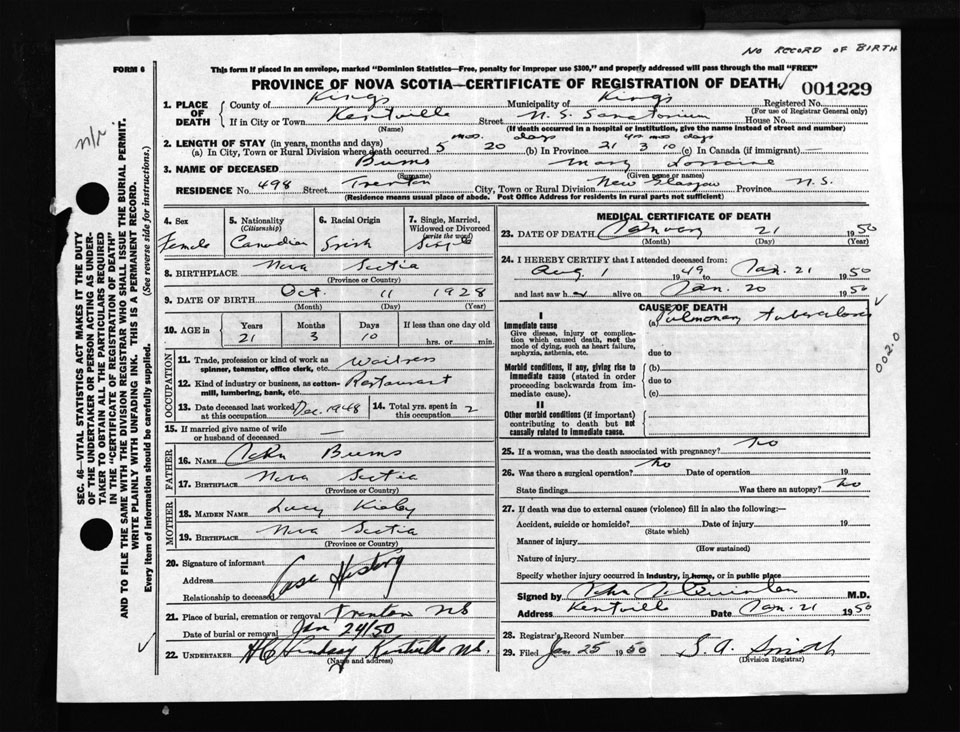 NO RECORD OF BIRTH
FORM 6
This form if placed in an envelope, marked "Dominion Statistics—Free, penalty for improper use $300," and properly addressed will pass through the mail "FREE"
PROVINCE OF NOVA SCOTIA—CERTIFICATE OF REGISTRATION OF DEATH
001229
n/r
1. PLACE OF DEATH
County of Kings Municipality of Kings Registered No.
(For use of Registrar General only)
If in City or Town Kentville Street N. S. Sanatorium House No.
(Name) (If death occurred in a hospital or institution, give the name instead of street and number)
2. LENGTH OF STAY (in years, months and days) mos. days yrs mos days
(a) In City, Town or Rural Division where death occurred 5 20 (b) In Province 21 3 10 (c) In Canada (if immigrant) —
3. NAME OF DECEASED Burns Mary Lorraine
(Surname) (Given name or names)
RESIDENCE No. 498 Street Trenton City, Town or Rural Division New Glasgow Province N.S.
(Residence means usual place of abode. Post Office Address for residents in rural parts not sufficient)
4. Sex
Female
5. Nationality
(Citizenship)
Canadian
6. Racial Origin
Irish
7. Single, Married, Widowed or Divorced
(write the word)
Single
8. BIRTHPLACE Nova Scotia
(Province or Country)
9. DATE OF BIRTH Oct. 11 1928
(Month) (Day) (Year)
10. AGE in Years Months Days If less than one day old
21 3 10 hrs. or min.
OCCUPATION
11. Trade, profession or kind of work as spinner, teamster, office clerk, etc. Waitress
12. Kind of industry or business, as cotton-mill, lumbering, bank, etc. Restaurant
13. Date deceased last worked at this occupation Dec. 1948
14. Total yrs. spent in this occupation 2
15. If married give name of wife or husband of deceased —
FATHER
16. NAME John Burns
17. BIRTHPLACE Nova Scotia
(Province or Country)
MOTHER
18. MAIDEN NAME Lucy
19. BIRTHPLACE Nova Scotia
(Province or Country)
20. Signature of informant
Address
Relationship to deceased
Case History
21. Place of burial, cremation or removal Trenton NS
Date of burial or removal Jan 24/50
22. UNDERTAKER H C Lindsay Kentville N.S.
(Name and address)
MEDICAL CERTIFICATE OF DEATH
23. DATE OF DEATH January 21 1950
(Month) (Day) (Year)
24. I HEREBY CERTIFY that I attended deceased from:
Aug 1 1949 to Jan. 21 1950
and last saw her alive on Jan. 20 1950
CAUSE OF DEATH
I
Immediate cause (a) Pulmonary tuberculosis
Give disease, injury or complication which caused death, not the mode of dying, such as heart failure, asphyxia, asthenia, etc.
due to
Morbid conditions, if any, giving rise to immediate cause (stated in order proceeding backwards from immediate cause).
(b)
due to
(c)
II
Other morbid conditions (if important) contributing to death but not causally related to immediate cause.
002.0
25. If a woman, was the death associated with pregnancy? No
26. Was there a surgical operation? No Date of operation 19
State findings Was there an autopsy? No
27. If death was due to external causes (violence) fill in also the following:—
Accident, suicide or homicide? Date of injury 19
(State which)
Manner of injury
(How sustained)
Nature of injury
Specify whether injury occurred in industry, in home, or in public place
Signed by John J. Quinlan M.D.
Address Kentville Date Jan. 21 1950
28. Registrar's Record Number
29. Filed Jan 25 1950 S. A. Smith
(Division Registrar)
SEC. 46—VITAL STATISTICS ACT MAKES IT THE DUTY
OF THE UNDERTAKER OR PERSON ACTING AS UNDERTAKER TO OBTAIN ALL THE PARTICULARS REQUIRED
IN THE "CERTIFICATE OF REGISTRATION OF DEATH"
AND TO FILE THE SAME WITH THE DIVISION REGISTRAR WHO SHALL ISSUE THE BURIAL PERMIT.
WRITE PLAINLY WITH UNFADING INK. THIS IS A PERMANENT RECORD.
Every item of information should be carefully supplied. (See reverse side for instructions.)